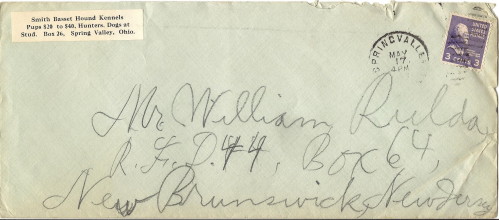 Smith Basset Hound Kennels
Pups $20 to $40. Hunters. Dogs at
Stud. Box 26, Spring Valley, Ohio.
SPRING VALLEY
MAY
17
PM
3 CENTS 3
Mr. William Rulda
R. F. D. #4, Box 64,
New Brunswick, New Jersey